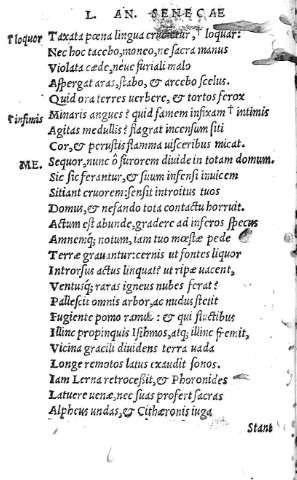 L. AN. SENECAE
†loquor Taxata pœna lingua crucietur, † loquar:
Nec hoc tacebo, moneo, ne sacra manus
Violata cæde, néue furiali malo
Aspergat aras, stabo, & arcebo scelus.
Quid ora terres uerbere, & tortos ferox
†infimis Minaris angues? quid famem infixam † intimis
Agitas medullis? flagrat incensum siti
Cor, & perustis flamma uisceribus micat.
ME. Sequor, nunc ô furorem diuide in totam domum.
Sic sic ferantur, & suum infensi inuicem
Sitiant cruorem: sensit introitus tuos
Domus, & nefando tota contactu horruit.
Actum est abunde, gradere ad inferos specus
Amnemq; notum, iam tuo mœstæ pede
Terræ grauantur: cernis ut fontes liquor
Introrsus actus linquat? ut ripæ uacent,
Ventusq; raras igneus nubes ferat?
Pallescit omnis arbor, ac nudus stetit
Fugiente pomo ramus: & qui fluctibus
Illinc propinquis Isthmos, atq; illinc fremit,
Vicina gracili diuidens terra uada
Longe remotos latus exaudit sonos.
Iam Lerna retrocessit, & Phoronides
Latuere uenæ, nec suas profert sacras
Alpheus undas, & Cithæronis iuga
Stant